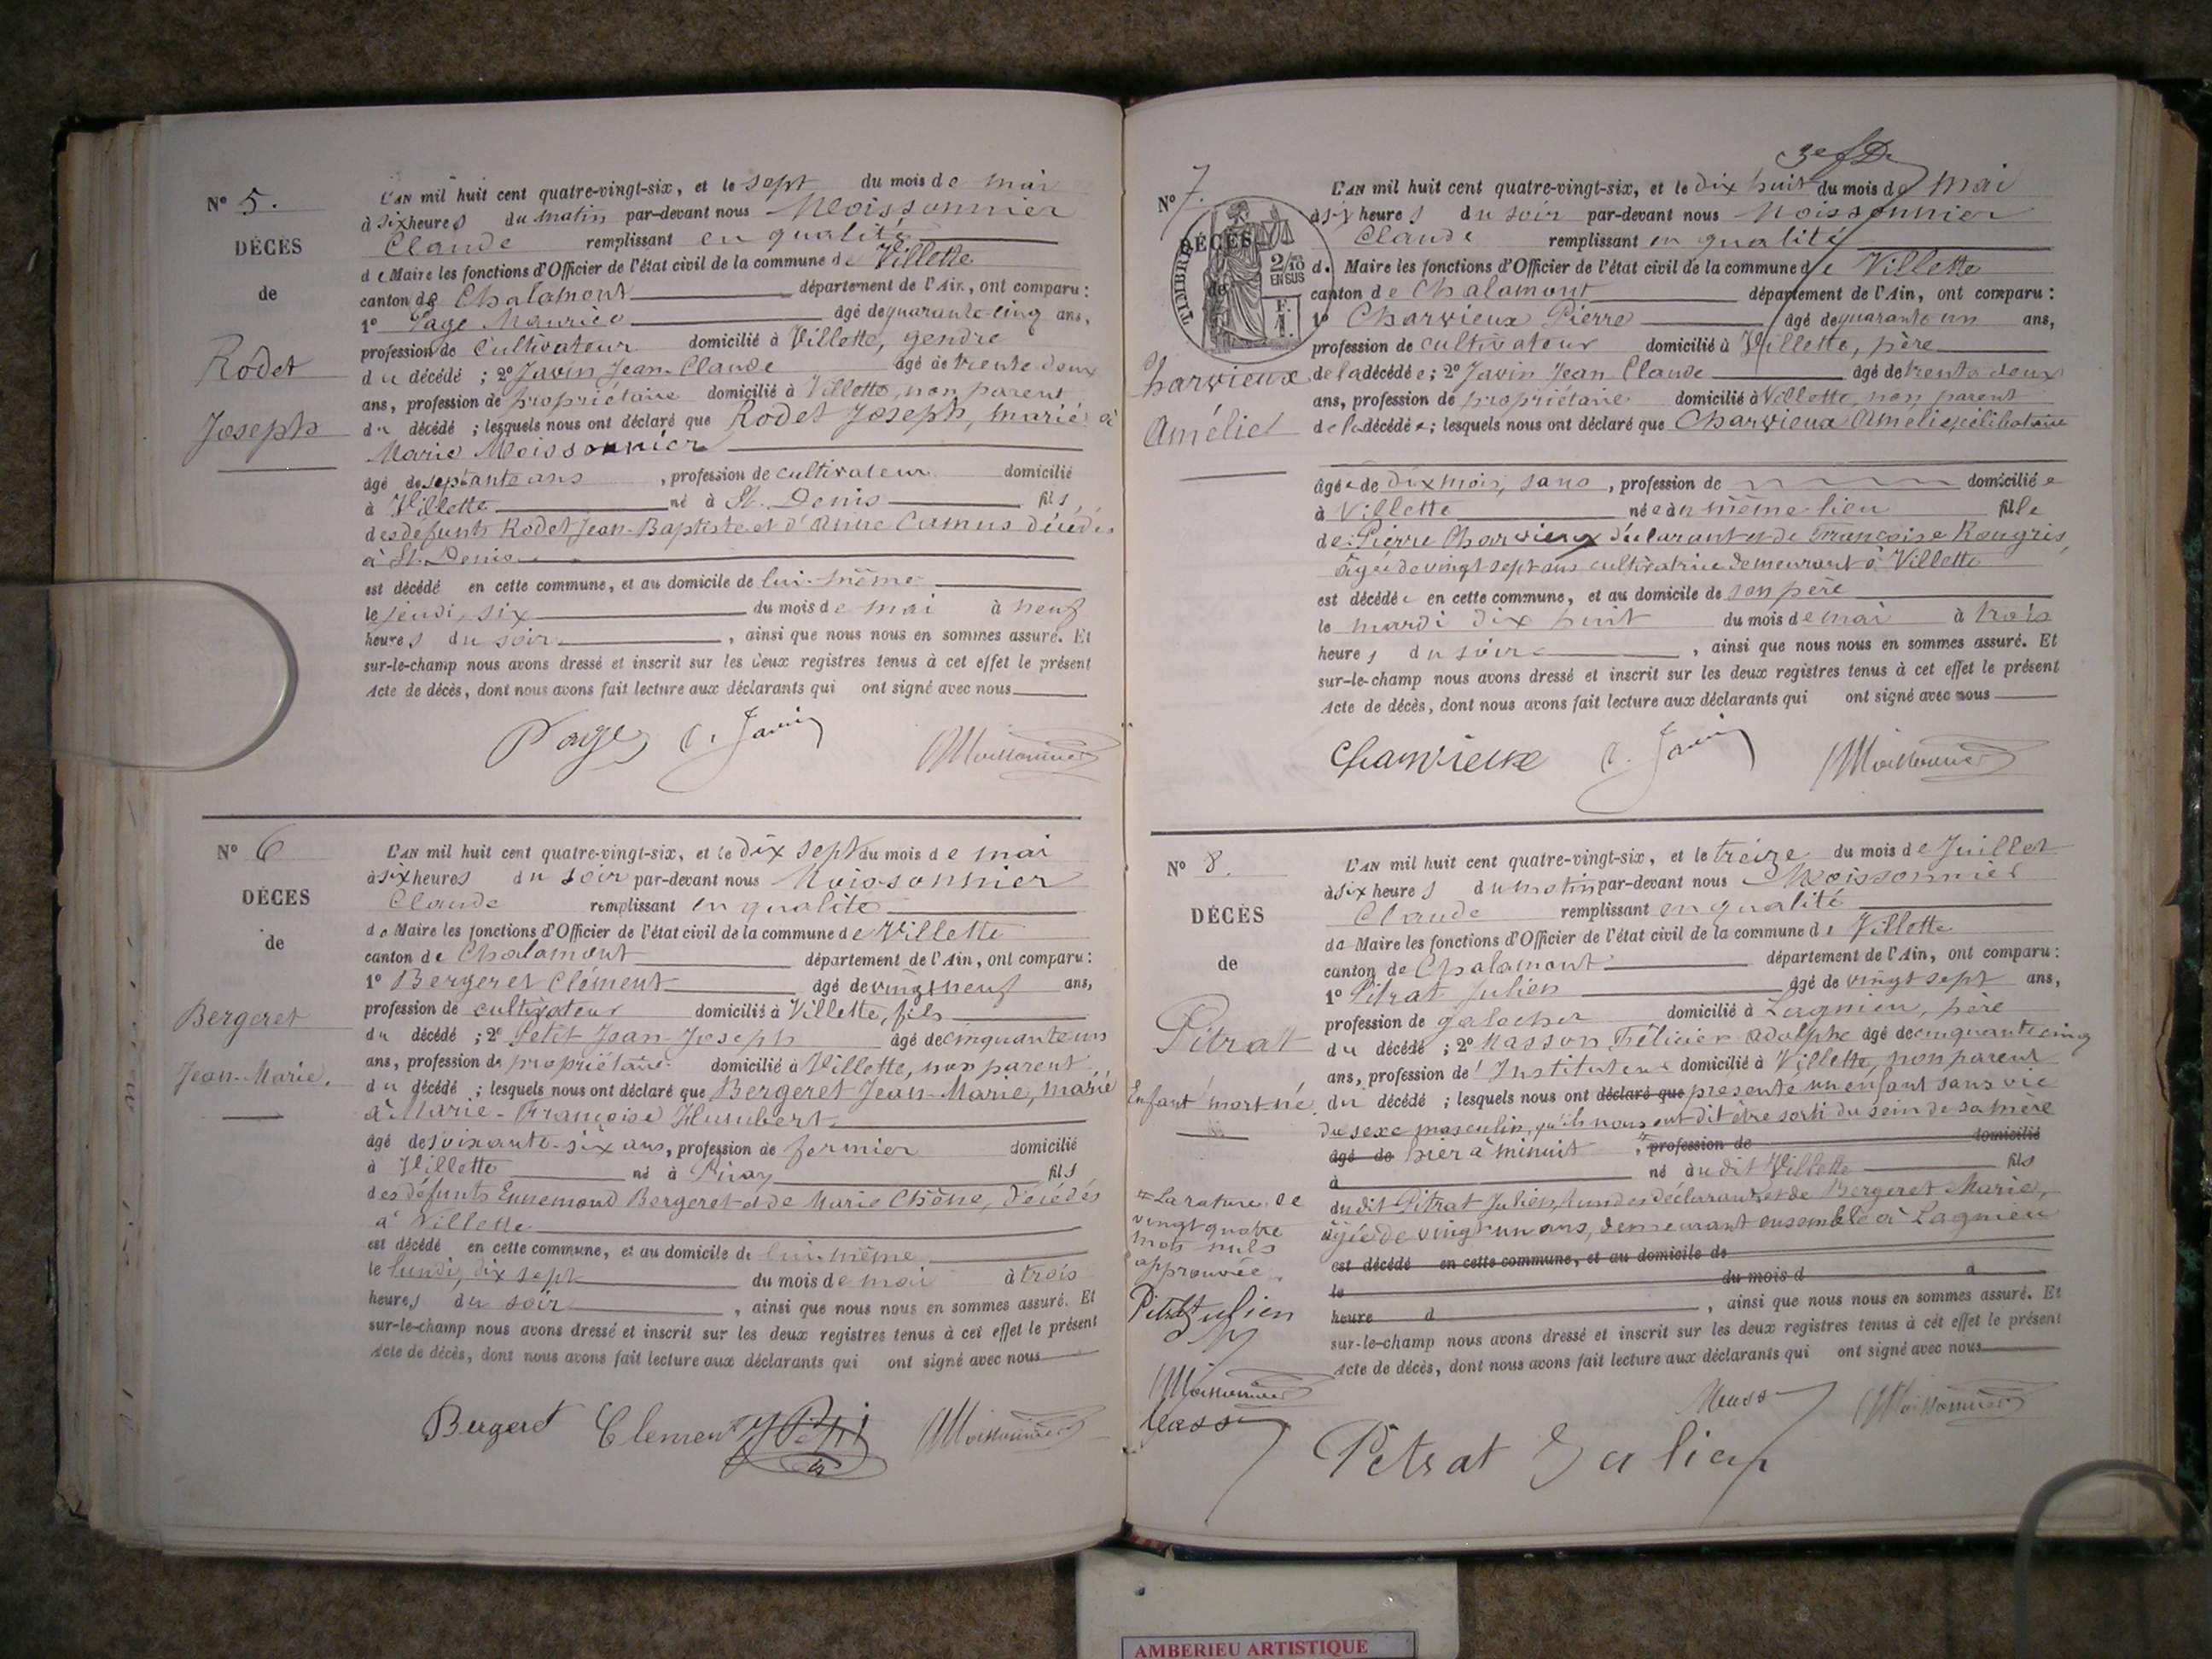 N° 5.
DÉCÈS
de
Rodet
Joseph
L'AN mil huit cent quatre-vingt-six, et le sept du mois de mai
à six heures du matin par-devant nous Moissonnier
Claude remplissant en qualité
de Maire les fonctions d'Officier de l'état civil de la commune de Villette
canton de Chalamont département de l'Ain, ont comparu :
1° Page Maurice âgé de quarante-cinq ans,
profession de Cultivateur domicilié à Villette, gendre
du décédé ; 2° Javin Jean-Claude âgé de trente deux
ans, profession de propriétaire domicilié à Villette, non parent
du décédé ; lesquels nous ont déclaré que Rodet Joseph, marié à
Marie Moissonnier
âgé de septante ans , profession de cultivateur domicilié
à Villette né à St. Denis fils
des défunts Rodet Jean-Baptiste et d'Anne Camus décédés
à St. Denis
est décédé en cette commune, et au domicile de lui-même
le jeudi, six du mois de mai à neuf
heures du soir , ainsi que nous nous en sommes assuré. Et
sur-le-champ nous avons dressé et inscrit sur les deux registres tenus à cet effet le présent
Acte de décès, dont nous avons fait lecture aux déclarants qui ont signé avec nous
Page C. Javin Moissonnier
N° 6
DÉCÈS
de
Bergeret
Jean-Marie.
L'AN mil huit cent quatre-vingt-six, et le dix sept du mois de mai
à six heures du soir par-devant nous Moissonnier
Claude remplissant en qualité
de Maire les fonctions d'Officier de l'état civil de la commune de Villette
canton de Chalamont département de l'Ain, ont comparu :
1° Bergeret Clément âgé de vingt neuf ans,
profession de cultivateur domicilié à Villette, fils
du décédé ; 2° Petit Jean-Joseph âgé de cinquante un
ans, profession de propriétaire domicilié à Villette, non parent
du décédé ; lesquels nous ont déclaré que Bergeret Jean-Marie, marié
à Marie-Françoise Humbert
âgé de soixante-six ans, profession de fermier domicilié
à Villette né à Priay fils
des défunts Ennemond Bergeret et de Marie Chêne, décédés
à Villette
est décédé en cette commune, et au domicile de lui-même
le lundi, dix sept du mois de mai à trois
heures du soir , ainsi que nous nous en sommes assuré. Et
sur-le-champ nous avons dressé et inscrit sur les deux registres tenus à cet effet le présent
Acte de décès, dont nous avons fait lecture aux déclarants qui ont signé avec nous
Bergeret Clement Moissonnier
N° 7.
TIMBRE
2/10 EN SUS
F. 1.
DÉCÈS
de
Charvieux
Amélie
L'AN mil huit cent quatre-vingt-six, et le dix huit du mois de mai
à six heures du soir par-devant nous Moissonnier
Claude remplissant en qualité
de Maire les fonctions d'Officier de l'état civil de la commune de Villette
canton de Chalamont département de l'Ain, ont comparu :
1° Charvieux Pierre âgé de quarante un ans,
profession de cultivateur domicilié à Villette, père
de la décédée ; 2° Javin Jean Claude âgé de trente deux
ans, profession de propriétaire domicilié à Villette, non parent
de la décédée ; lesquels nous ont déclaré que Charvieux Amélie, célibataire
âgée de dix mois, sans , profession de domiciliée
à Villette née au même lieu fille
de Pierre Charvieux déclarant et de Françoise Rougris,
âgée de vingt sept ans cultivatrice demeurant à Villette
est décédée en cette commune, et au domicile de son père
le mardi dix huit du mois de mai à trois
heures du soir , ainsi que nous nous en sommes assuré. Et
sur-le-champ nous avons dressé et inscrit sur les deux registres tenus à cet effet le présent
Acte de décès, dont nous avons fait lecture aux déclarants qui ont signé avec nous
Charvieux C. Javin Moissonnier
N° 8.
DÉCÈS
de
Pitrat
Enfant mort né.
L'AN mil huit cent quatre-vingt-six, et le treize du mois de Juillet
à six heures du matin par-devant nous Moissonnier
Claude remplissant en qualité
de Maire les fonctions d'Officier de l'état civil de la commune de Villette
canton de Chalamont département de l'Ain, ont comparu :
1° Pitrat Julien âgé de vingt sept ans,
profession de galocher domicilié à Lagnieu, père
du décédé ; 2° Masson Félicien Adolphe âgé de cinquante cinq
ans, profession d'Instituteur domicilié à Villette, non parent
du décédé ; lesquels nous ont déclaré que présenté un enfant sans vie
du sexe masculin, qu'ils nous ont dit être sorti du sein de sa mère
âgé de hier à minuit , profession de domicilié
à né audit Villette fils
dudit Pitrat Julien, l'un des déclarants et de Bergeret Marie,
âgée de vingt un ans, demeurant ensemble à Lagnieu
est décédé en cette commune, et au domicile de
le du mois d à
heure d , ainsi que nous nous en sommes assuré. Et
sur-le-champ nous avons dressé et inscrit sur les deux registres tenus à cet effet le présent
Acte de décès, dont nous avons fait lecture aux déclarants qui ont signé avec nous
La rature de
vingt quatre
mots nuls
approuvée.
Pitrat Julien
Moissonnier
Masson
Masson Moissonnier
Pitrat Julien
AMBERIEU ARTISTIQUE